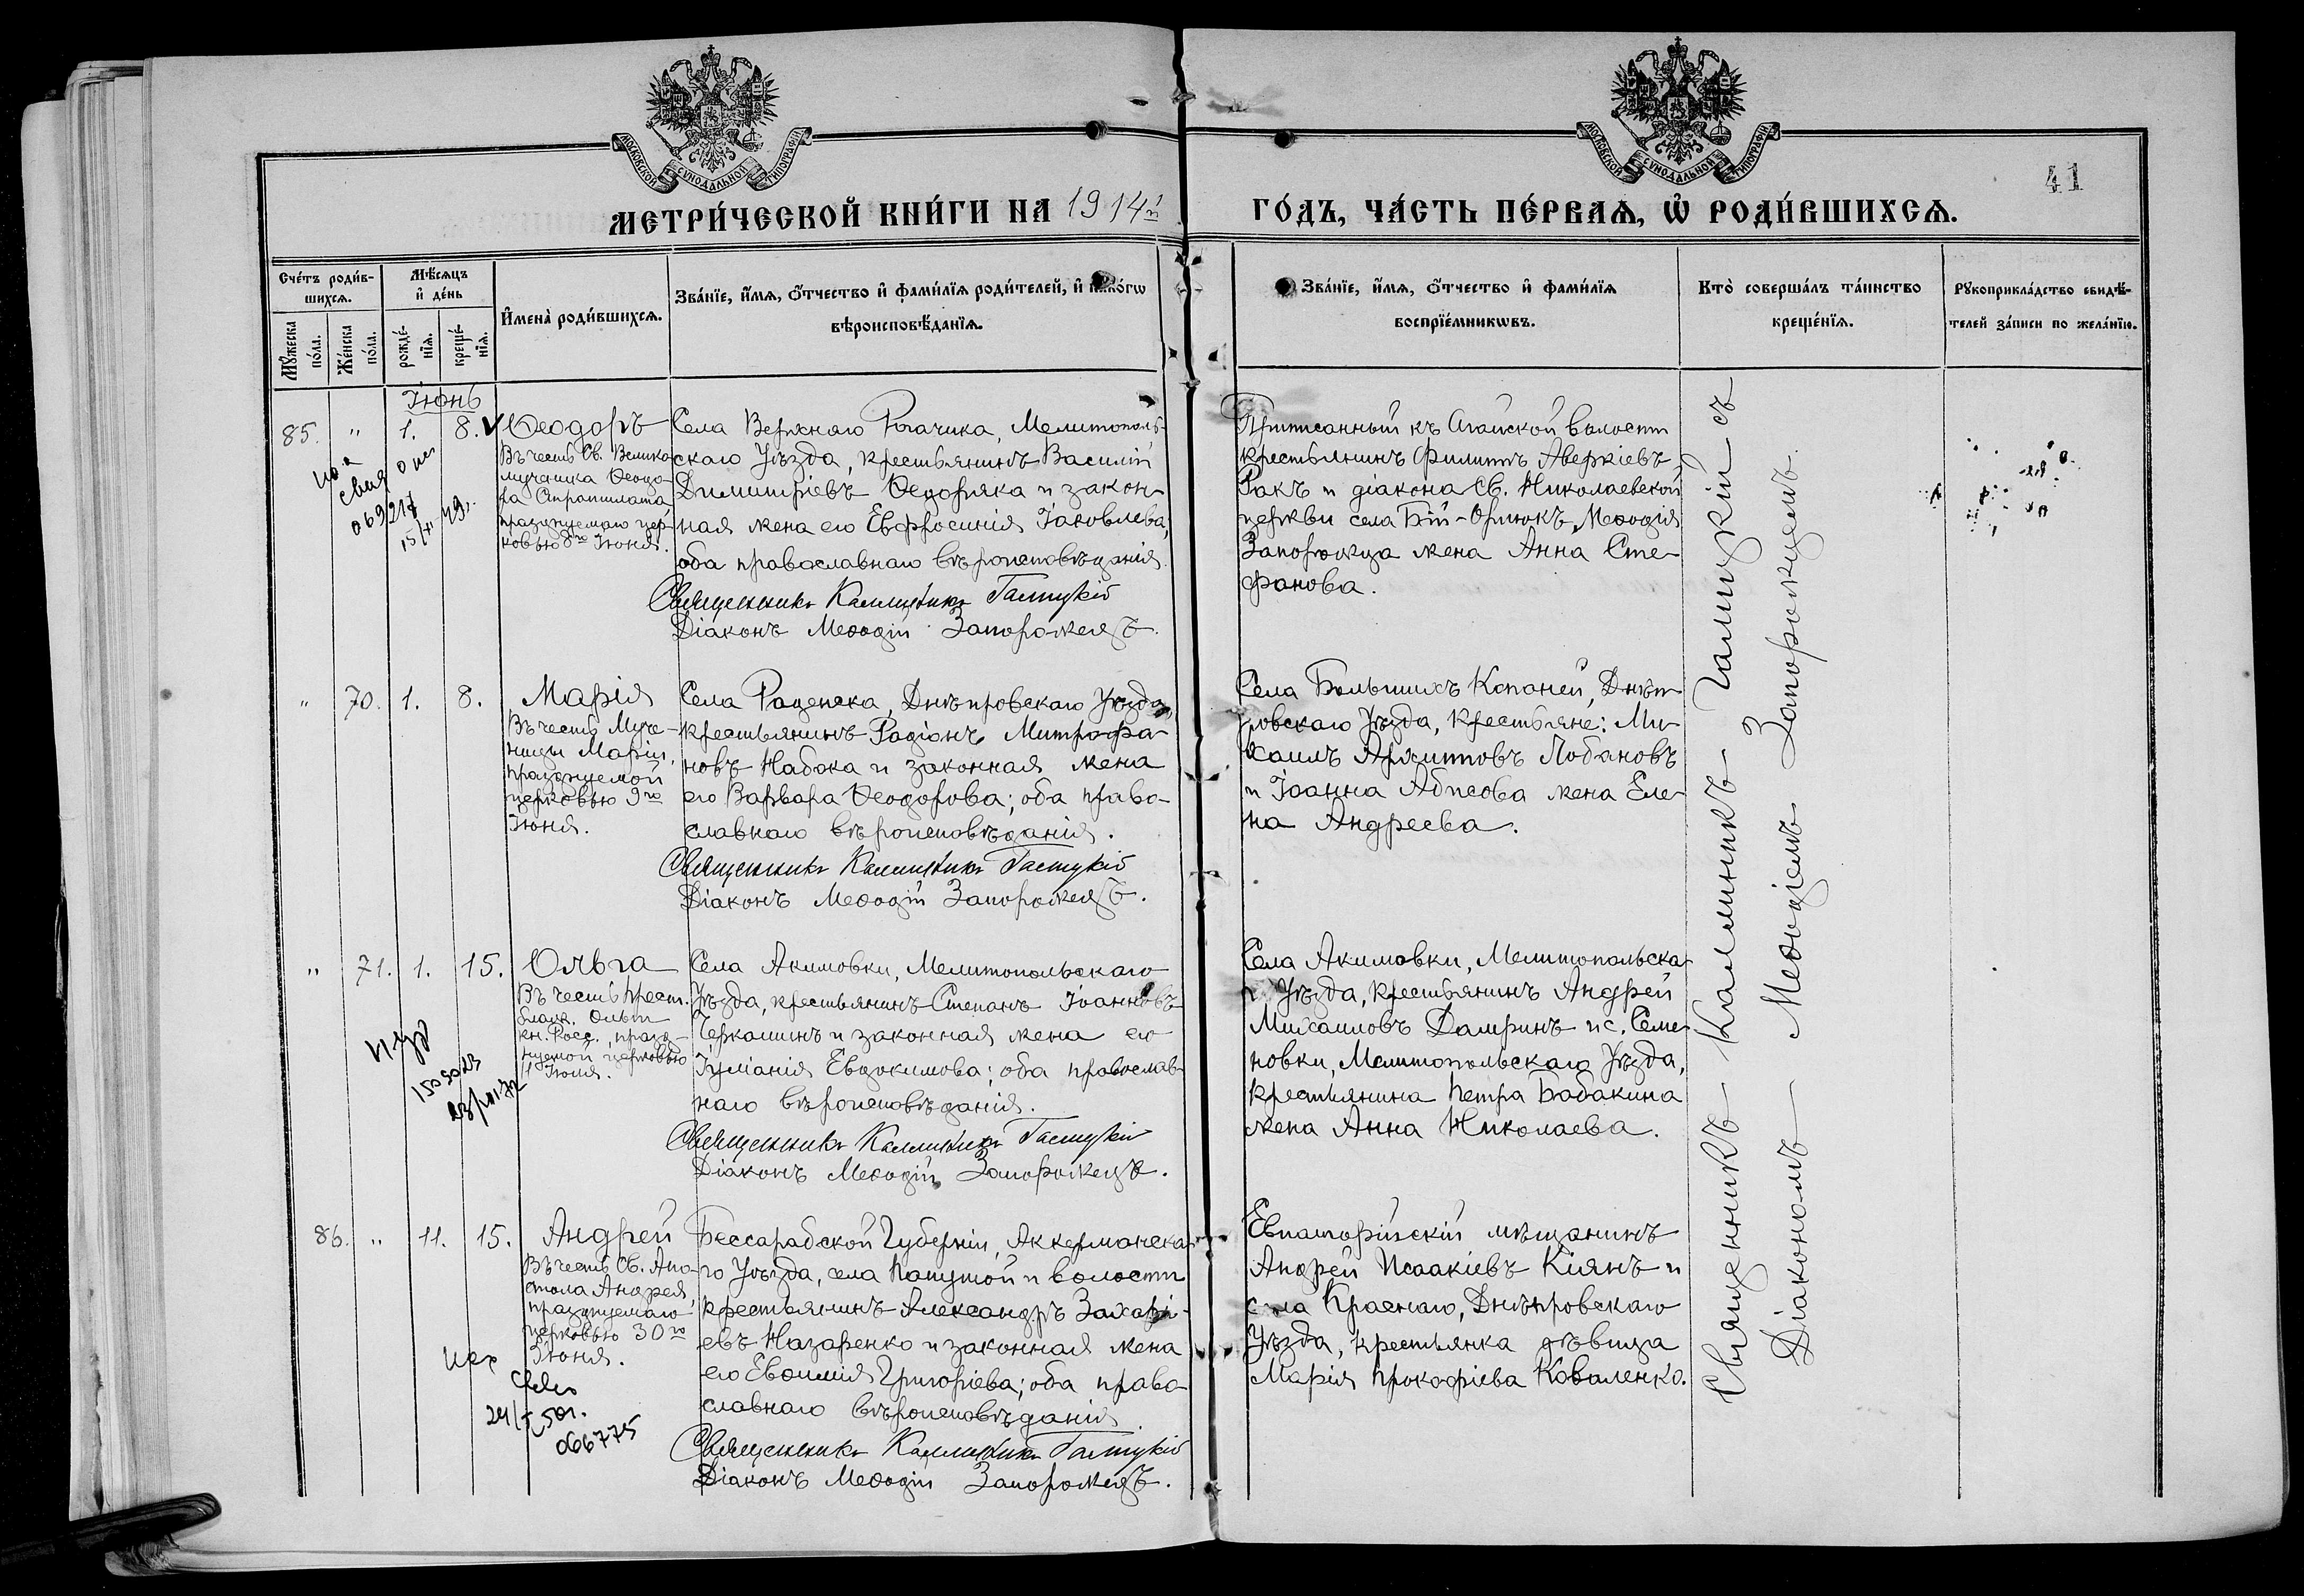 МОСКОВСКОЙ СУНОДАЛЬНОЙ ТИПОГРАФІИ
МОСКОВСКОЙ СУНОДАЛЬНОЙ ТИПОГРАФІИ
41
МЕТРИ́ЧЕСКОЙ КНИ́ГИ НА 1914й ГО́ДЪ, ЧА́СТЬ ПЕ́РВАѦ, Ѡ҆ РОДИ́ВШИХСѦ.
Сче́тъ роди́в-
шихсѧ.
Мѣ́сѧцъ
и҆ де́нь
Мꙋ́жеска
по́ла.
Же́нска
по́ла.
рожде́-
нїѧ.
креще́-
нїѧ.
И҆мена̀ роди́вшихсѧ.
Зва́нїе, и҆́мѧ, ѻ҆́тчество и҆ фами́лїѧ роди́телей, и҆ како́гѡ
вѣроисповѣ́данїѧ.
Зва́нїе, и҆́мѧ, ѻ҆́тчество и҆ фами́лїѧ
воспрїе́мникѡвъ.
Кто̀ соверша́лъ та́инство
креще́нїѧ.
Рꙋкоприкла́дство свидѣ́-
телей за́писи по жела́нїю.
Іюнь
85. " 1. 8.
Ѳеодоръ
Въ честь Св. Велико
мученика Ѳеодо-
ра Стратилата
празднуемаго цер-
ковью 8го Іюня.
069217
Села Верхняго Рогачика, Мелитополь-
скаго Уѣзда, крестьянинъ Василій
Димитріевъ Ѳедоряка и закон-
ная жена его Евфросинія Іаковлева,
оба православнаго вѣроисповѣданія.
Священникъ Каллиникъ Галицкій
Діаконъ Меѳодій Запорожецъ.
Приписанный къ Агайской волости
крестьянинъ Филиппъ Аверкіевъ
Ракъ и діакона Св. Николаевской
церкви села Бій-Орлюкъ Меѳодія
Запорожца жена Анна Сте-
фанова.
" 70. 1. 8.
Марія
Въ честь Муче-
ницы Маріи,
празднуемой
церковью 9го
Іюня.
Села Раденска, Днѣпровскаго Уѣзда,
крестьянинъ Радіонъ Митрофа-
новъ Набока и законная жена
его Варвара Ѳеодорова; оба право-
славнаго вѣроисповѣданія.
Священникъ Каллиникъ Галицкій
Діаконъ Меѳодій Запорожецъ.
Села Большихъ Копаней, Днѣп-
ровскаго Уѣзда, крестьяне: Ми-
хаилъ Архиповъ Лобановъ
и Іоанна жена Еле-
на Андреева.
" 71. 1. 15.
Ольга
Въ честь
Ольги
кн. Росс., празд-
нуемой церковью
11 Іюля.
Села Акимовки, Мелитопольскаго
Уѣзда, крестьянинъ Стефанъ Іоанновъ
Черкашинъ и законная жена его
Іуліанія Евдокимова; оба православ-
наго вѣроисповѣданія.
Священникъ Каллиникъ Галицкій
Діаконъ Меѳодій Запорожецъ.
Села Акимовки, Мелитопольска-
го Уѣзда, крестьянинъ Андрей
Михаиловъ и с. Семе-
новки, Мелитопольскаго Уѣзда,
крестьянина Петра Бабакина
жена Анна Николаева.
86. " 11. 15.
Андрей
Въ честь Св. Апо-
стола Андрея,
празднуемаго
церковью 30го
Іюня.
066775
Бессарабской Губерніи, Аккерманска-
го Уѣзда, села и волости
крестьянинъ Александръ Захарі-
евъ Назаренко и законная жена
его Евѳимія Григоріева; оба право-
славнаго вѣроисповѣданія.
Священникъ Каллиникъ Галицкій
Діаконъ Меѳодій Запорожецъ.
Евпаторійскій мѣщанинъ
Андрей Исаакіевъ Кіянъ и
села Краснаго, Днѣпровскаго
Уѣзда, крестьянка дѣвица
Марія Прокофіева Коваленко.
Священникъ Каллиникъ Галицкій съ
Діакономъ Меѳодіемъ Запорожцемъ.